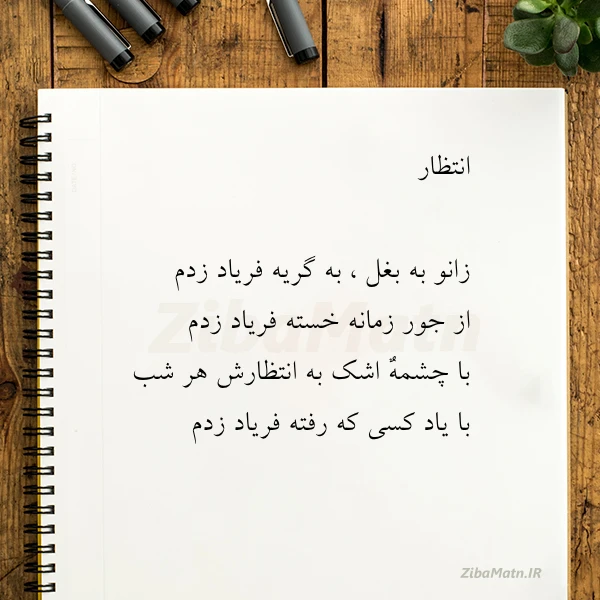 انتظار
زانو به بغل ، به گریه فریاد زدم
از جور زمانه خسته فریاد زدم
با چشمهٌ اشک به انتظارش هر شب
با یاد کسی که رفته فریاد زدم
ZibaMatn
ZibaMatn.IR